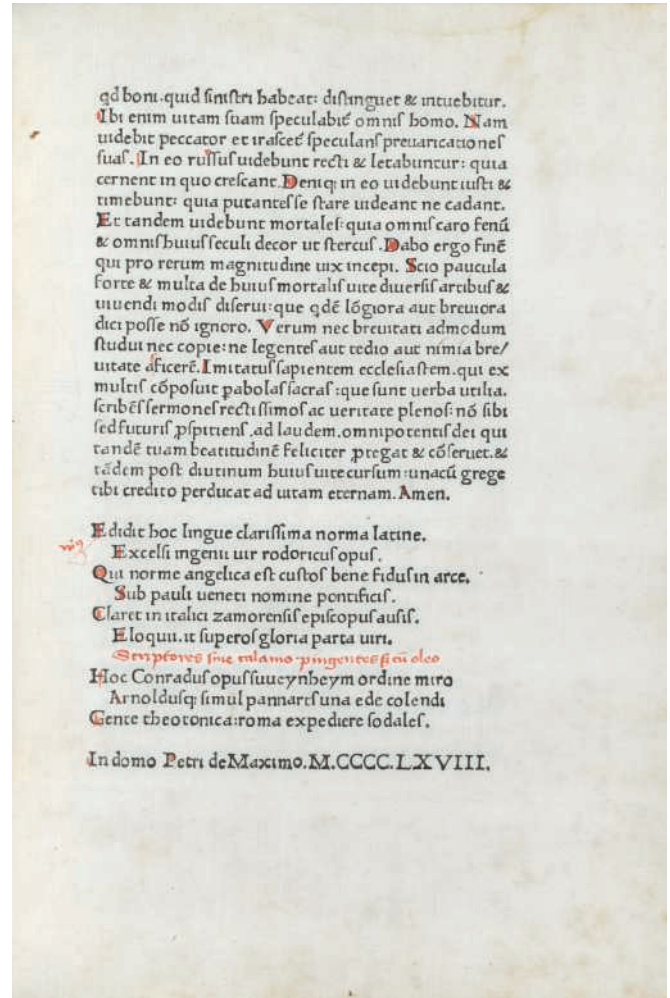 qd boni.quid sinistri habeat: distinguet & intuebitur.
Ibi enim uitam suam speculabit̃ omnis homo. Nam
uidebit peccator et irascet̃ speculans preuaricationes
suas. In eo russus uidebunt recti & letabuntur: quia
cernent in quo crescant. Deniq; in eo uidebunt iusti &
timebunt: quia putantes se stare uideant ne cadant.
Et tandem uidebunt mortales: quia omnis caro fenū
& omnis huius seculi decor ut stercus. Dabo ergo finē
qui pro rerum magnitudine uix incepi. Scio paucula
forte & multa de huius mortalis uite diuersis artibus &
uiuendi modis diserui: que qdē lōgiora aut breuiora
dici posse nō ignoro. Verum nec breuitati admodum
studui nec copie: ne legentes aut tedio aut nimia bre/
uitate aficerē. Imitatus sapientem ecclesiastem. qui ex
multis cōposuit pabolas sacras: que sunt uerba utilia.
scribēs sermones rectissimos ac ueritate plenos: nō sibi
sed futuris pspitiens .ad laudem. omnipotentis dei qui
tandē tuam beatitudinē feliciter ptegat & cōseruet. &
tādem post diutinum huius uite cursum: unacū grege
tibi credito perducat ad uitam eternam. Amen.
Edidit hoc lingue clarissima norma latine.
Excelsi ingenii uir rodoricus opus.
Qui norme angelica est custos bene fidus in arce.
Sub pauli ueneti nomine pontificis.
Claret in italici zamorensis episcopus ausis.
Eloquii. it superos gloria parta uiri.
Scriptores sine calamo pingentes si cū oleo
Hoc Conradus opus suueynheym ordine miro
Arnoldusq; simul pannarts una ede colendi
Gente theotonica: roma expediere sodales.
In domo Petri de Maximo. M.CCCC.LXVIII.